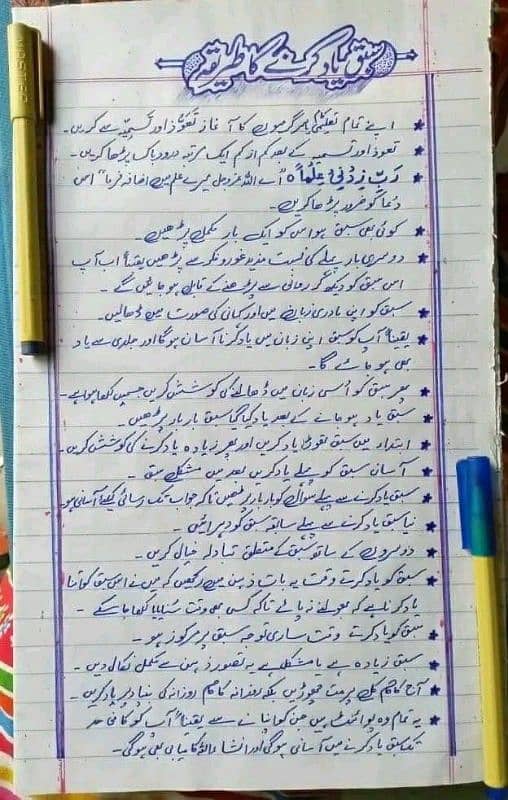 سبق یاد کرنے کا طریقہ
★ اپنے تمام تعلیمی سرگرمیوں کا آغاز تعوّذ اور تسمیہ سے کریں۔
★ تعوذ اور تسمیہ کے بعد کم از کم ایک مرتبہ درود پاک پڑھا کریں۔
★ رَبِّ زِدْنِیْ عِلْمًا ہ "اے اللہ عزوجل میرے علم میں اضافہ فرما" اس
دُعا کو ضرور پڑھا کریں۔
★ کوئی بھی سبق ہو اس کو ایک بار مکمل پڑھیں۔
★ دوسری بار پہلے کی نسبت مزید غور و فکر سے پڑھیں یقیناً اب آپ
اس سبق کو دیکھ کر روانی سے پڑھنے کے قابل ہو جائیں گے۔
★ سبق کو اپنی مادری زبان میں اور کہانی کی صورت میں ڈھالیں۔
★ یقیناً آپ کو سبق اپنی زبان میں یاد کرنا آسان ہوگا اور جلدی سے یاد
بھی ہو جائے گا۔
★ پھر سبق کو اُسی زبان میں ڈھالنے کی کوشش کریں جسمیں لکھا ہوا ہے۔
★ سبق یاد ہو جانے کے بعد یاد کیا گیا سبق بار بار پڑھیں۔
★ ابتداء میں سبق تھوڑا یاد کریں اور پھر زیادہ یاد کرنے کی کوشش کریں۔
★ آسان سبق کو پہلے یاد کریں بعد میں مشکل سبق۔
★ سبق یاد کرنے سے پہلے سوال کو بار بار پڑھیں تاکہ جواب تک رسائی کیلئے آسانی ہو۔
★ نیا سبق یاد کرنے سے پہلے سابقہ سبق کو دہرائیں۔
★ دوسروں کے ساتھ سبق کے متعلق تبادلہ خیال کریں۔
★ سبق کو یاد کرتے وقت یہ بات ذہن میں رکھیں کہ میں نے اس سبق کو اتنا
یاد کرنا ہے کہ بھولنے نہ پائے تاکہ کسی بھی وقت سُنایا لکھا جا سکے۔
★ سبق کو یاد کرتے وقت ساری توجہ سبق پر مرکوز ہو۔
★ سبق زیادہ ہے یا مشکل ہے یہ تصور ذہن سے مکمل نکال دیں۔
★ آج کا کام کل پر مت چھوڑیں بلکہ روزانہ کا کام روزانہ کی بنیاد پر یاد کریں۔
★ یہ تمام وہ پوائنٹ ہیں جن کو اپنانے سے یقیناً آپ کو کافی حد
تک سبق یاد کرنے میں آسانی ہوگی اور انشاءاللہ کامیابی بھی ہوگی۔